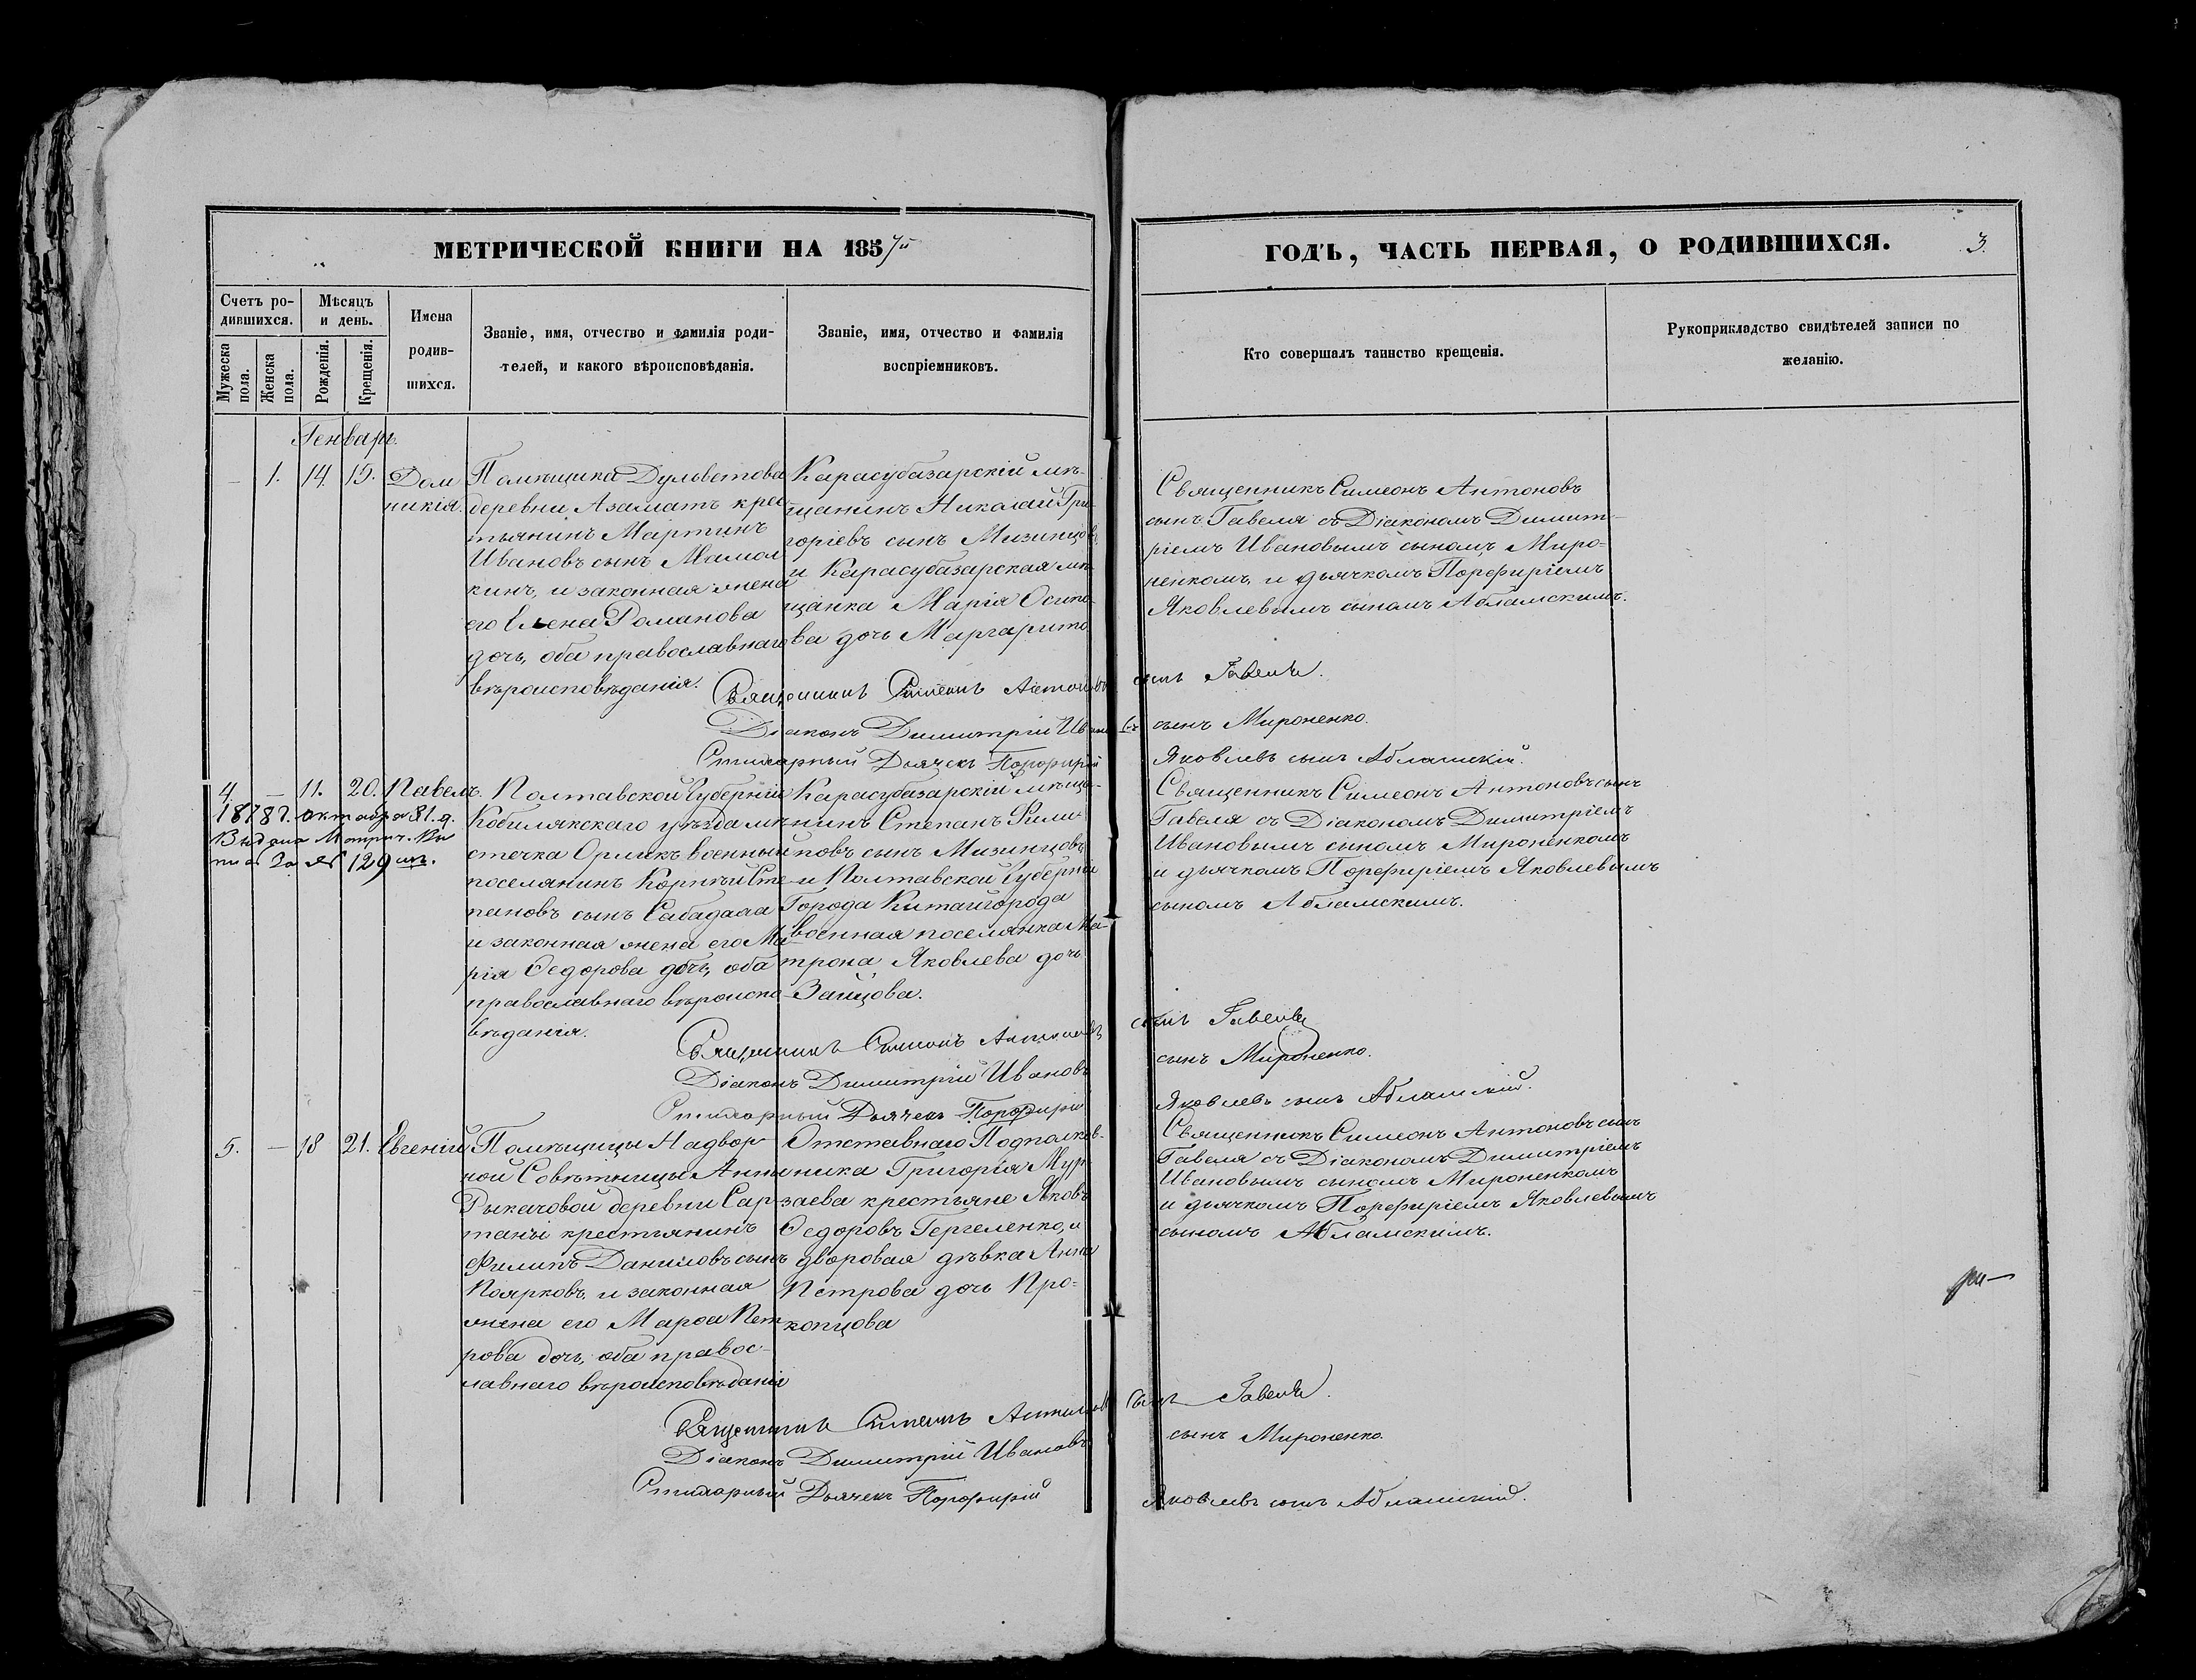 МЕТРИЧЕСКОЙ КНИГИ НА 1857й
ГОДЪ, ЧАСТЬ ПЕРВАЯ, О РОДИВШИХСЯ.
3.
Счетъ ро-
дившихся.
Мѣсяцъ
и день.
Имена
родив-
шихся.
Званіе, имя, отчество и фамилія роди-
телей, и какого вѣроисповѣданія.
Званіе, имя, отчество и фамилія
воспріемниковъ.
Кто совершалъ таинство крещенія.
Рукоприкладство свидѣтелей записи по
желанію.
Мужеска
пола.
Женска
пола.
Рожденія.
Крещенія.
Генварь.
— 1. 14. 15.
Дом
никія.
Помѣщика Дульветова
деревни Азаматъ крес
тьянинъ Мартинъ
Ивановъ сынъ Мамал
кинъ, и законная жена
его Елена Романова
дочь, оба православнаго
вѣроисповѣданія.
Карасубазарскій мѣ-
щанинъ Николай Гри
горіевъ сынъ Мизинцовъ
и Карасубазарская мѣ
щанка Марія Осипо-
ва дочь Маргарито
Священникъ Симеонъ Антоновъ
сынъ Гавеля съ Діакономъ Димит-
ріемъ Ивановымъ сыномъ Миро-
ненкомъ, и дьячкомъ Порфиріемъ
Яковлевымъ сыномъ Абламскимъ.
Священникъ Симеонъ Антоновъ сынъ Гавеля.
Діаконъ Димитрій Ивановъ сынъ Мироненко.
Стихарный Дьячекъ Порфирій Яковлевъ сынъ Абламскій.
4. — 11. 20. Павелъ.
1878 г. октября 31. д.
Выдана Метрич. Вы
пись За № 129
Полтавской Губерніи
Кобилякскаго уѣзда мѣ
стечка Орликъ военный
поселянинъ Корнѣй Сте
пановъ сынъ Сабадаха
и законная жена его Ма
рія Ѳедорова дочь, оба
православнаго вѣроиспо
вѣданія.
Карасубазарскій мѣща-
нинъ Степанъ Фили
повъ сынъ Мизинцовъ
и Полтавской Губерніи
Города Китайгорода
военная поселянка Ма-
трона Яковлева дочь
Зайцова.
Священникъ Симеонъ Антоновъ сынъ
Гавеля съ Діакономъ Димитріемъ
Ивановымъ сыномъ Мироненкомъ
и дьячкомъ Порфиріемъ Яковлевымъ
сыномъ Абламскимъ.
Священникъ Симеонъ Антоновъ сынъ Гавеля
Діаконъ Димитрій Ивановъ сынъ Мироненко.
Стихарный Дьячекъ Порфирій Яковлевъ сынъ Абламскій.
5. — 18 21. Евгеній
Помѣщицы Надвор
ной Совѣтницы Анны
Рыкачовой деревни Сар
таны крестьянинъ
Филипъ Даниловъ сынъ
Поярковъ, и законная
жена его Марѳа Пет
рова дочь, оба правос-
лавнаго вѣроисповѣданія
Отставнаго Подполков-
ника Григорія Мур
заева крестьяне Яковъ
Ѳедоровъ Гергеленко, и
дворовая дѣвка Анна
Петрова дочь Про-
копцова
Священникъ Симеонъ Антоновъ сынъ
Гавеля съ Діакономъ Димитріемъ
Ивановымъ сыномъ Мироненкомъ
и дьячкомъ Порфиріемъ Яковлевымъ
сыномъ Абламскимъ.
Священникъ Симеонъ Антоновъ сынъ Гавеля.
Діаконъ Димитрій Ивановъ сынъ Мироненко.
Стихарный Дьячекъ Порфирій Яковлевъ сынъ Абламскій.